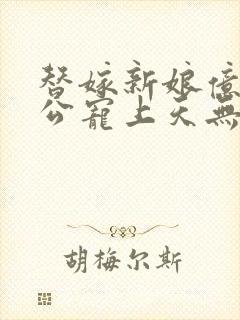 替嫁新娘億
公寵上天無
胡梅尔斯